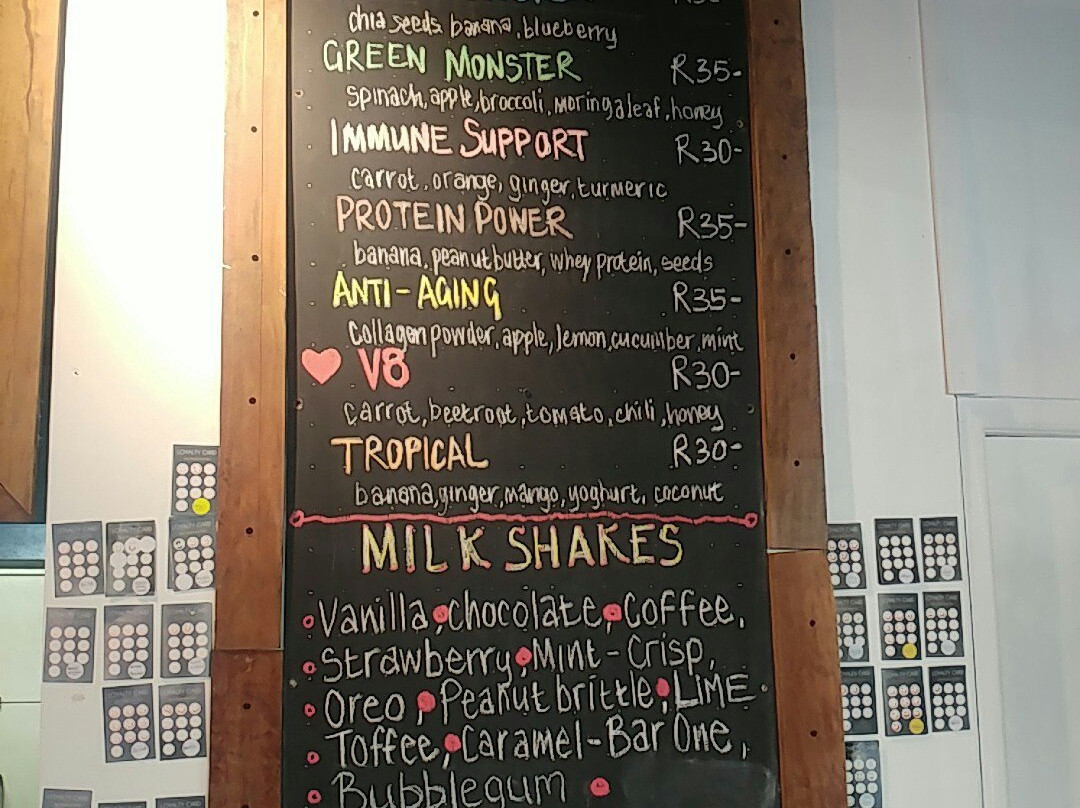 chia seeds, banana, blueberry
GREEN MONSTER R35-
spinach, apple, broccoli, moringa leaf, honey
IMMUNE SUPPORT R30-
carrot, orange, ginger, turmeric
PROTEIN POWER R35-
banana, peanut butter, whey protein, seeds
ANTI-AGING R35-
collagen powder, apple, lemon, cucumber, mint
V8 R30-
carrot, beetroot, tomato, chili, honey
TROPICAL R30-
banana, ginger, mango, yoghurt, coconut
MILK SHAKES
Vanilla, chocolate, Coffee,
Strawberry, Mint-Crisp,
Oreo, Peanut brittle, LIME
Toffee, Caramel-Bar One,
Bubblegum
LOYALTY CARD
LOYALTY CARD
LOYALTY CARD
LOYALTY CARD
LOYALTY CARD